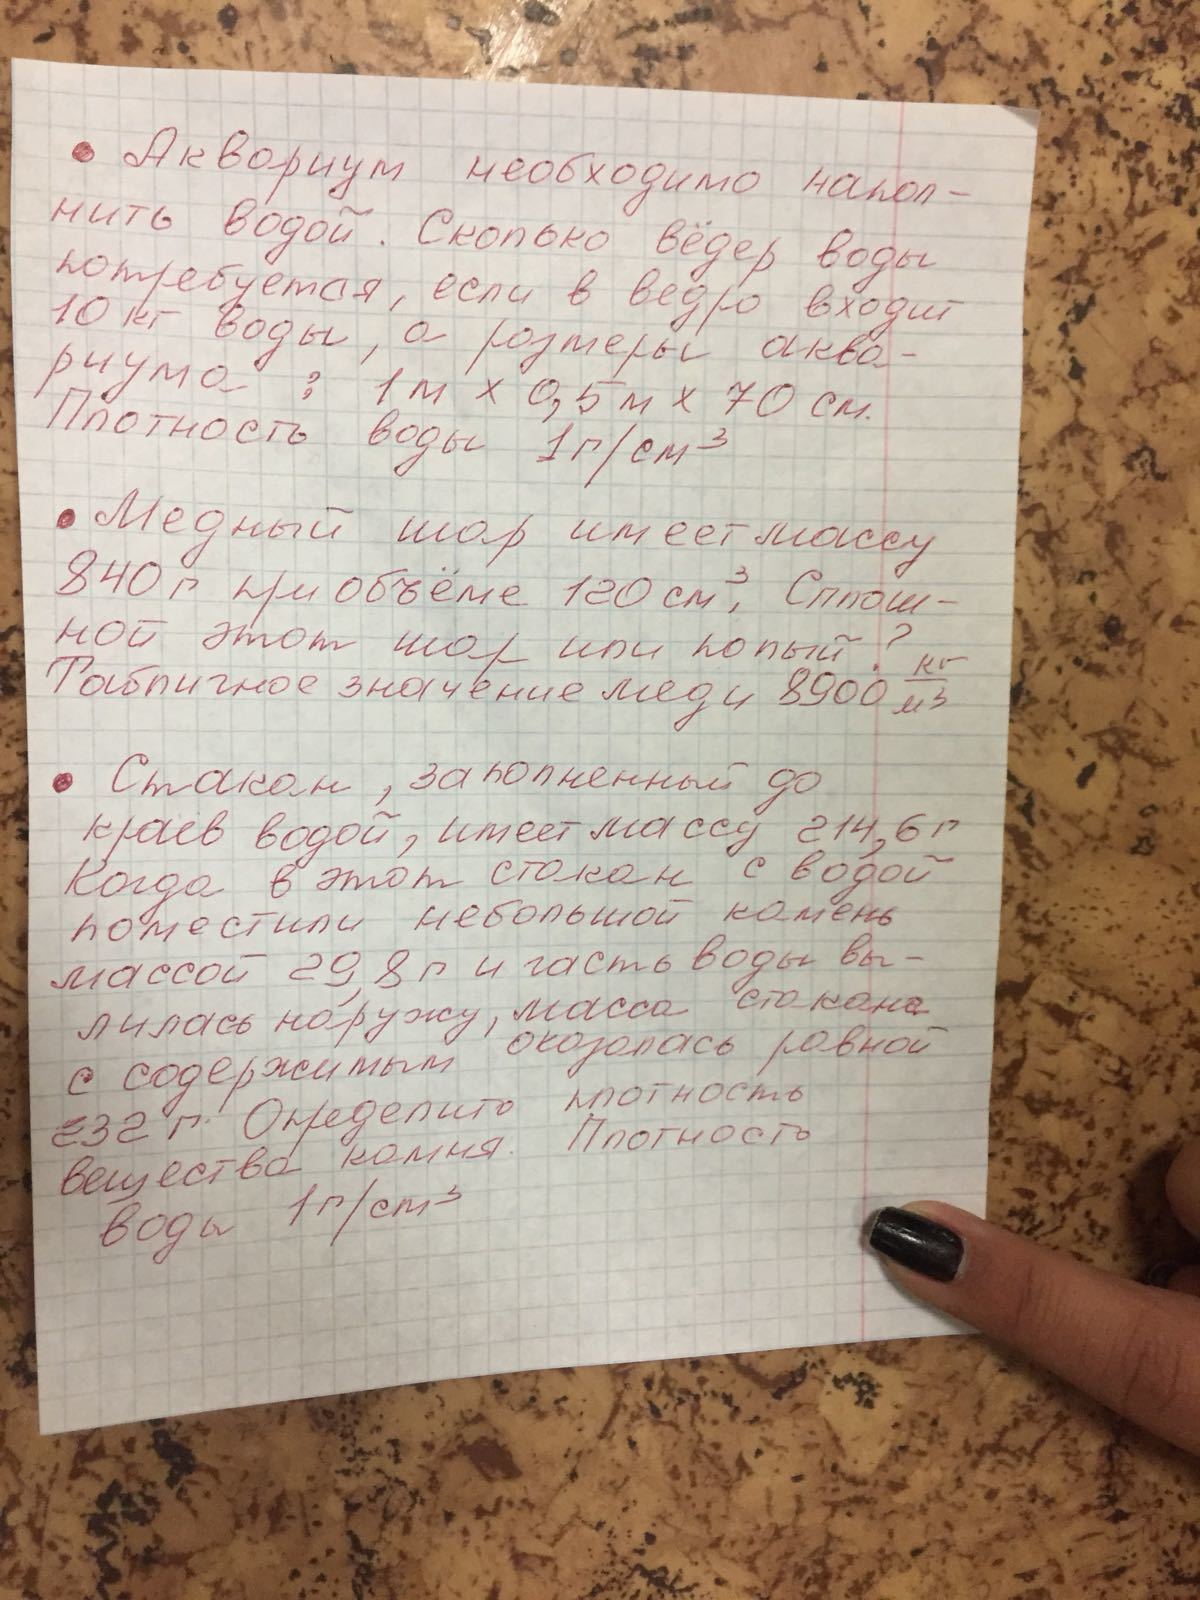 • Аквариум необходимо напол-
нить водой. Сколько вёдер воды
потребуется, если в ведро входит
10 кг воды, а размеры аква-
риума : 1м x 0,5м x 70 см.
Плотность воды 1г/см³
• Медный шар имеет массу
840 г при объёме 120 см³. Сплош-
ной этот шар или полый?
Табличное значение меди 8900 кг/м³
• Стакан, заполненный до
краев водой, имеет массу 214,6 г
Когда в этот стакан с водой
поместили небольшой камень
массой 29,8 г и часть воды вы-
лилась наружу, масса стакана
с содержимым оказалась равной
232 г. Определить плотность
вещества камня. Плотность
воды 1г/см³